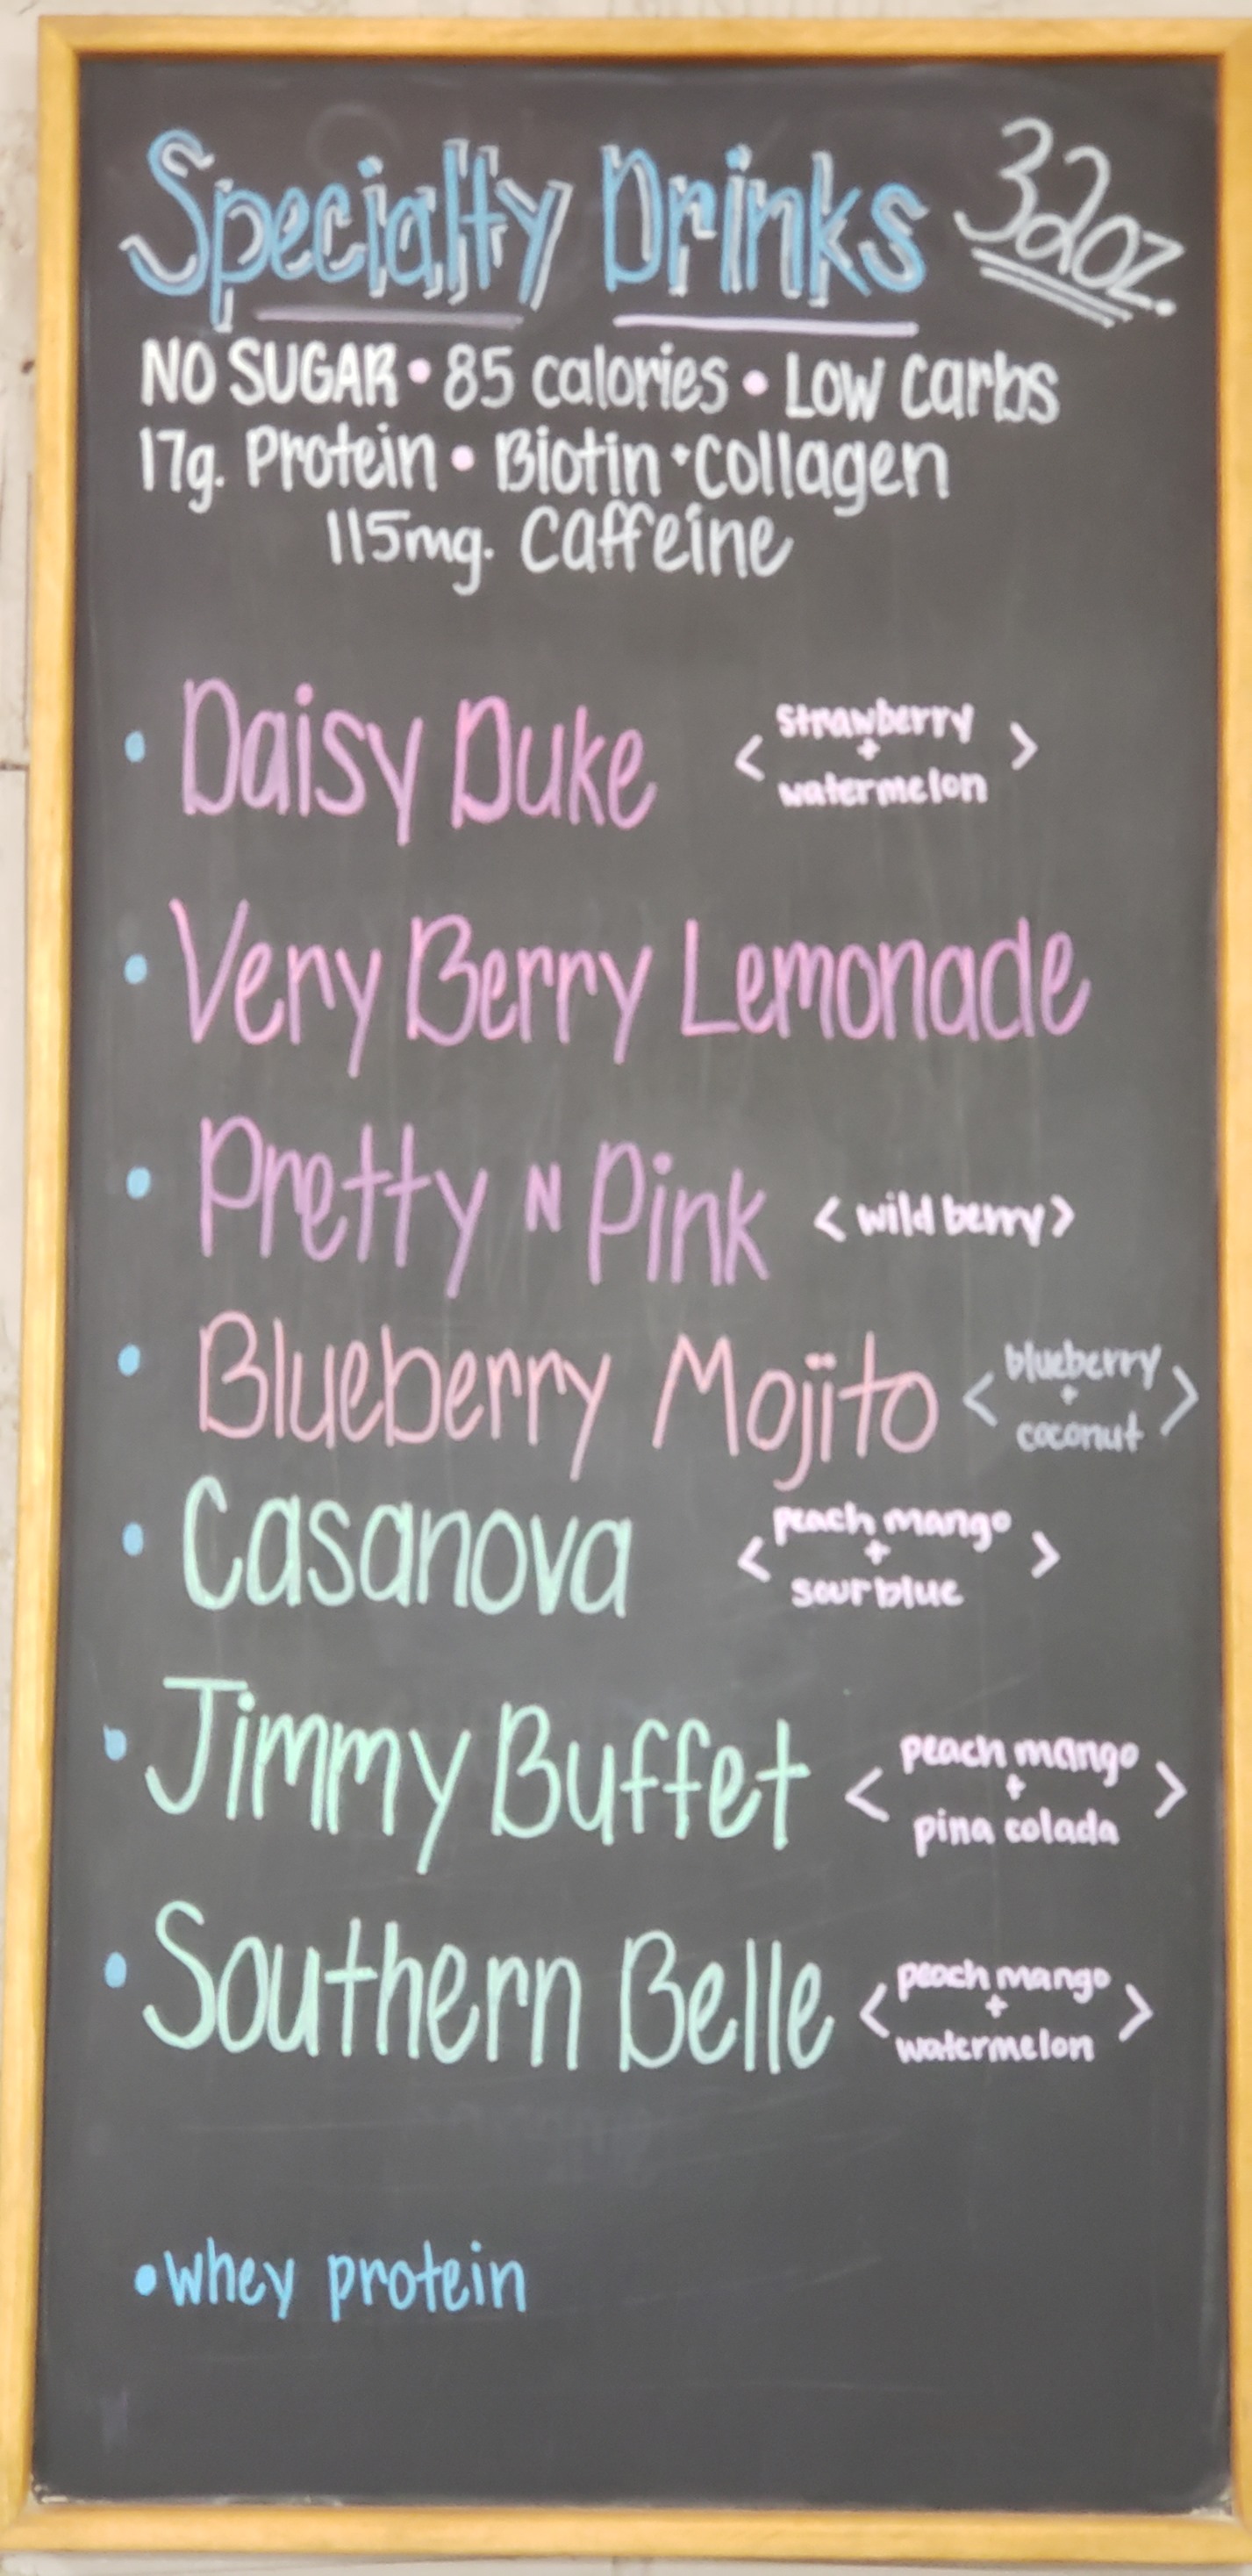 Specialty Drinks 32oz.
NO SUGAR • 85 calories • Low Carbs
17g. Protein • Biotin • Collagen
115mg. Caffeine
• Daisy Duke < strawberry + watermelon >
• Very Berry Lemonade
• Pretty N Pink < wild berry >
• Blueberry Mojito < blueberry + coconut >
• Casanova < peach mango + sour blue >
• Jimmy Buffet < peach mango + pina colada >
• Southern Belle < peach mango + watermelon >
• whey protein